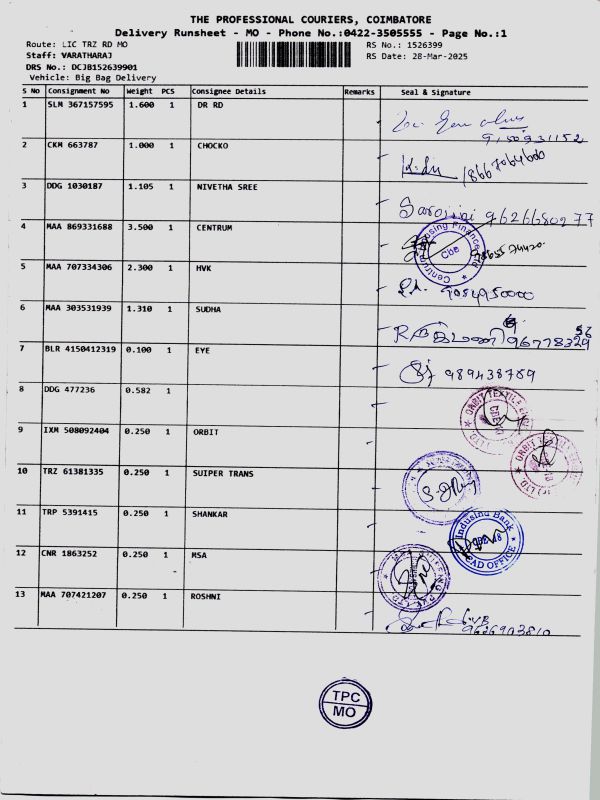 THE PROFESSIONAL COURIERS, COIMBATORE
Delivery Runsheet - MO - Phone No.:0422-3505555 - Page No.:1
Route: LIC TRZ RD MO
RS No.: 1526399
Staff: VARATHARAJ
RS Date: 28-Mar-2025
DRS No.: DCJB152639901
Vehicle: Big Bag Delivery
S No Consignment No Weight PCS Consignee Details Remarks Seal & Signature
1 SLM 367157595 1.600 1 DR RD
9150931152
2 CKM 663787 1.000 1 CHOCKO
3 DDG 1030187 1.105 1 NIVETHA SREE
Sarojini 9626680277
4 MAA 869331688 3.500 1 CENTRUM
Cbe
5 MAA 707334306 2.300 1 HVK
9084950000
6 MAA 303531939 1.310 1 SUDHA
7 BLR 4150412319 0.100 1 EYE
989438789
8 DDG 477236 0.582 1
ORBIT TEXTILE
9 IXM 508092404 0.250 1 ORBIT
ORBIT TEXTILE
10 TRZ 61381335 0.250 1 SUIPER TRANS
11 TRP 5391415 0.250 1 SHANKAR
IndusInd Bank
12 CNR 1863252 0.250 1 MSA
13 MAA 707421207 0.250 1 ROSHNI
9686903810
TPC
MO